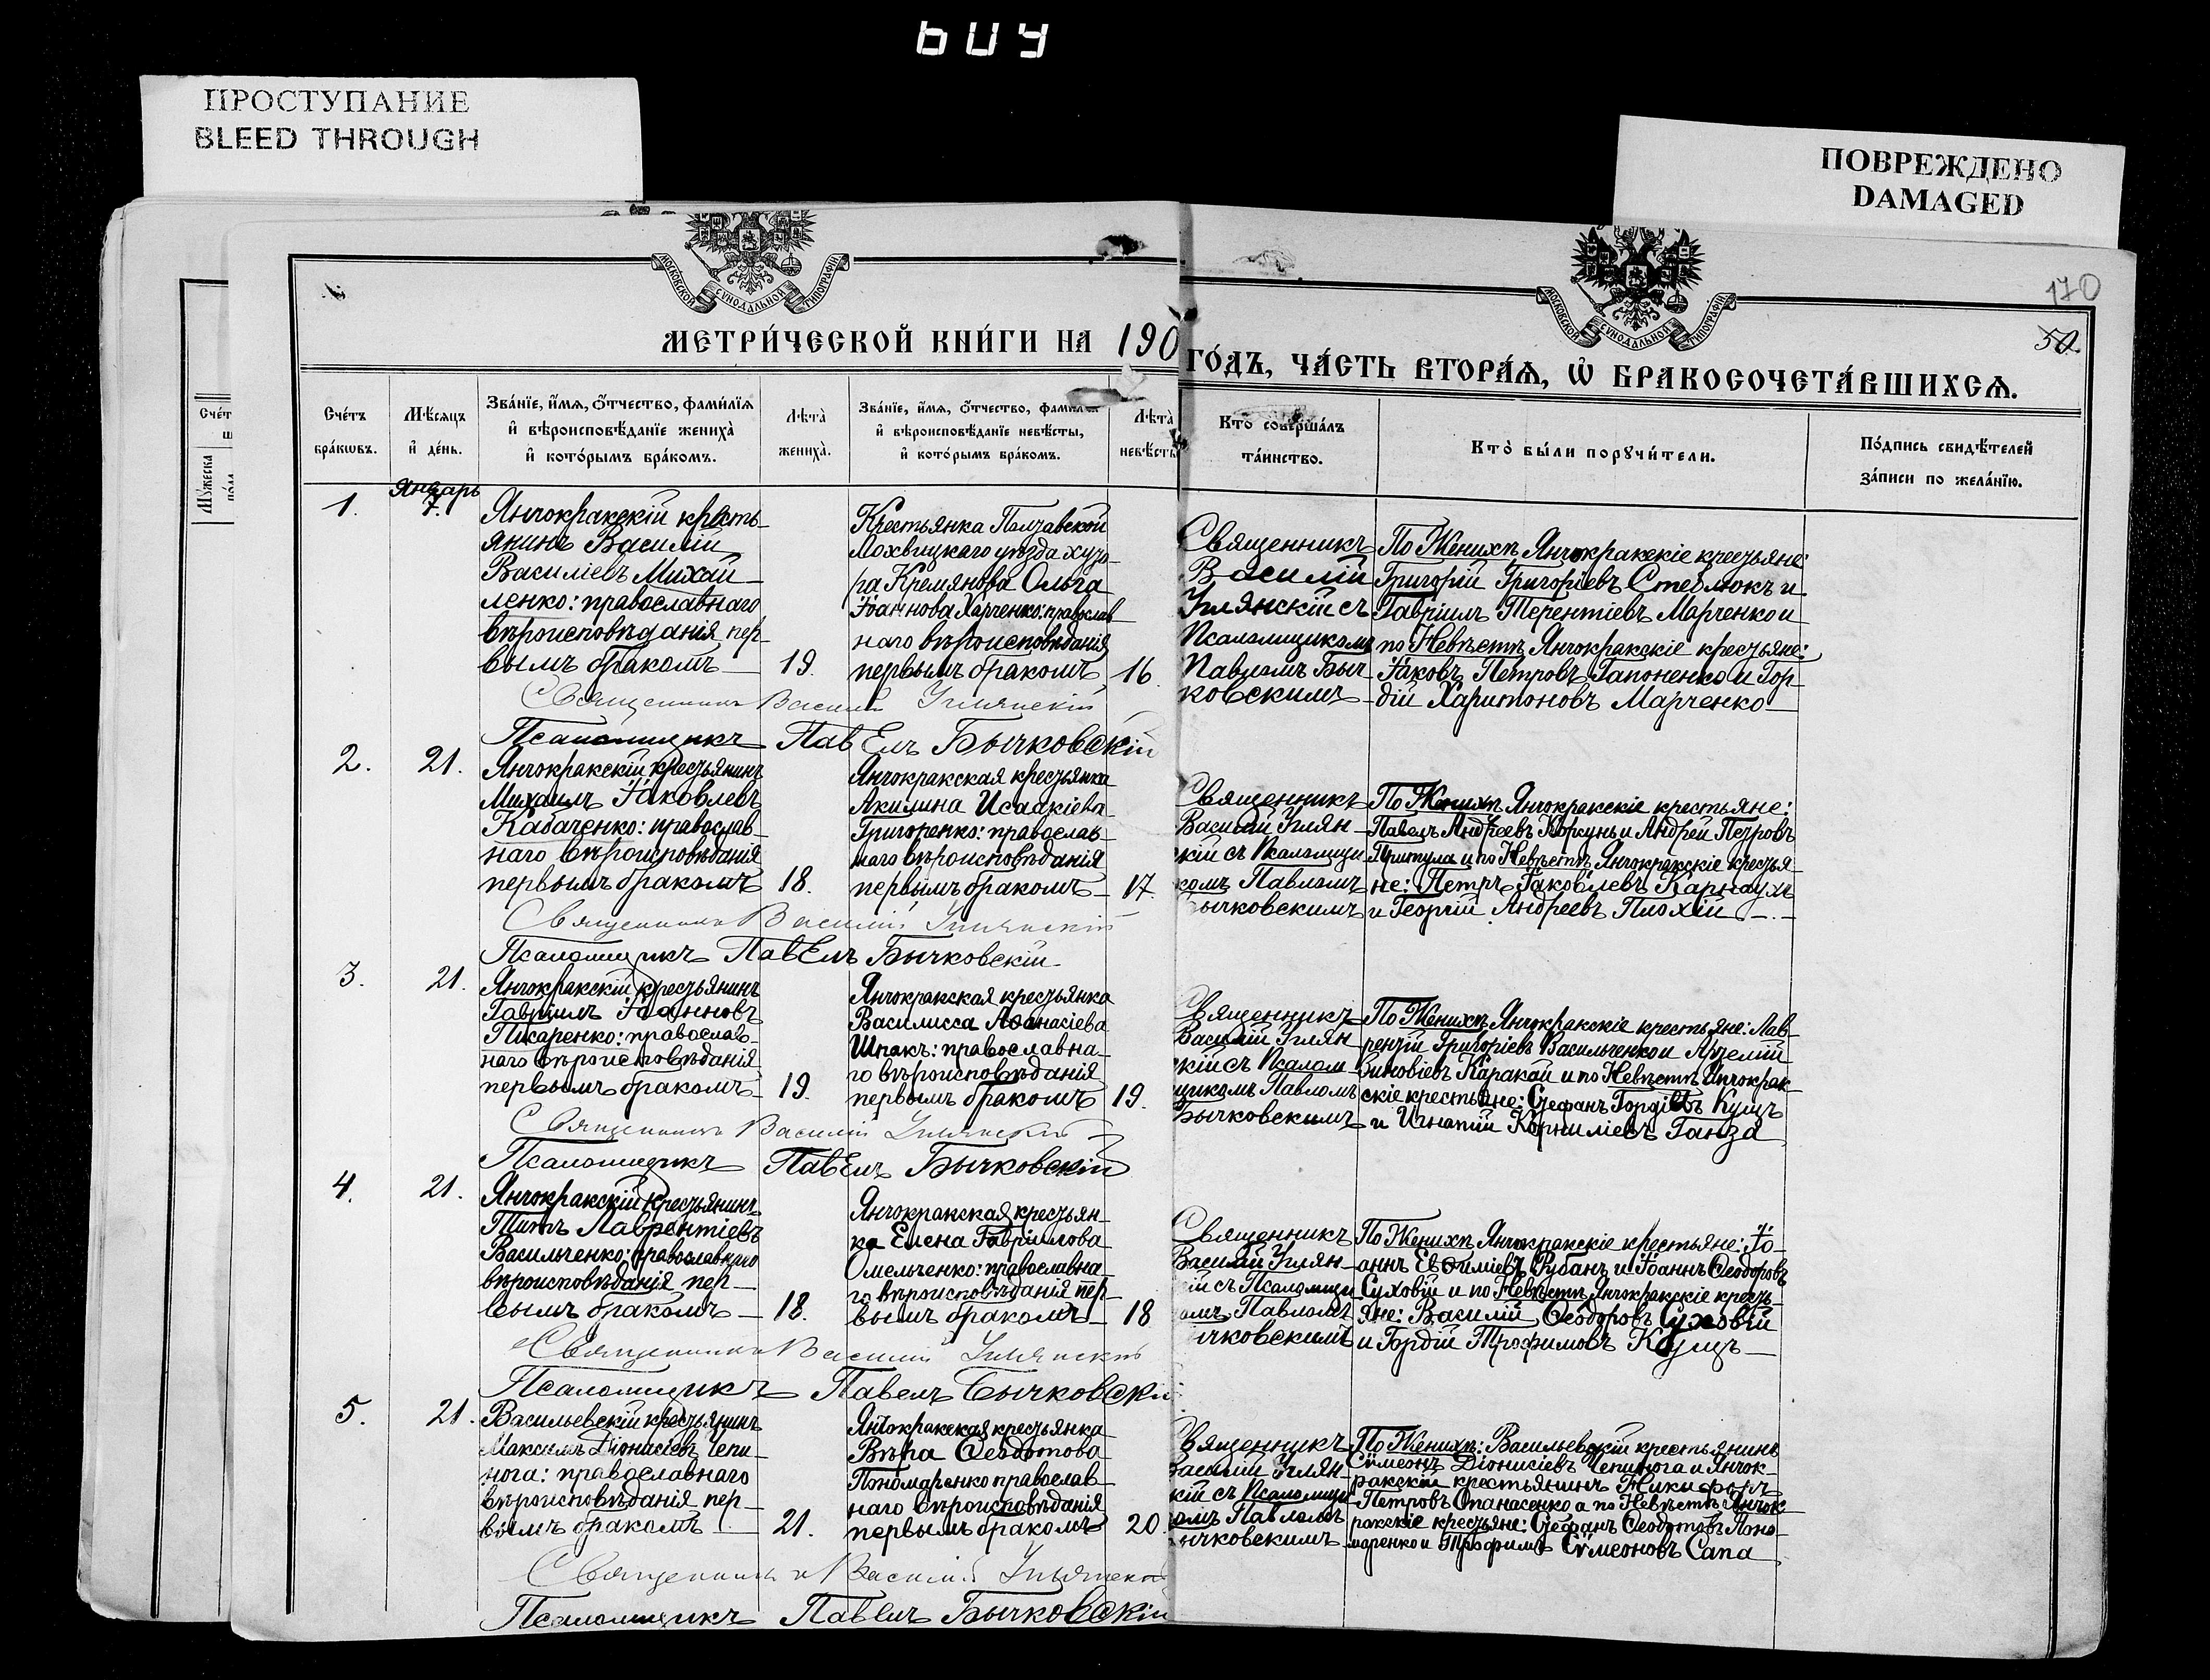 ПРОСТУПАНИЕ
BLEED THROUGH
ПОВРЕЖДЕНО
DAMAGED
МОСКОВСКОЙ СѴНОДАЛЬНОЙ ТИПОГРАФІИ
МОСКОВСКОЙ СѴНОДАЛЬНОЙ ТИПОГРАФІИ
170
50
МЕТРИ́ЧЕСКОЙ КНИ́ГИ НА 190
ГО́ДЪ, ЧА́СТЬ ВТОРА́Ѧ, Ѽ БРАКОСОЧЕТА́ВШИХСѦ.
Сче́тъ бра́кѡвъ.
Мѣ́сяцъ и҆ де́нь.
Зва́нїе, и҆́мѧ, ѻ҆́тчество, фами́лїѧ
и҆ вѣроисповѣ́данїе жениха̀
и҆ кото́рымъ бра́комъ.
Лѣ́та̀ жениха̀.
Зва́нїе, и҆́мѧ, ѻ҆́тчество, фами́лїѧ
и҆ вѣроисповѣ́данїе невѣ́сты,
и҆ кото́рымъ бра́комъ.
Лѣ́та̀ невѣ́сты
Кто̀ соверша́лъ
та́инство.
Кто̀ бы́ли порꙋчи́тели.
По́дпись свидѣ́телей
за́писи по жела́нїю.
1.
Январь
7.
Янчокракскій кресть-
янинъ Василій
Васильевъ Михай-
ленко: православнаго
вѣроисповѣданія пер-
вымъ бракомъ
19.
Крестьянка Полтавской
Лохвицкаго уѣзда хуто-
ра Кремянова Ольга
Іоаннова Харченко: православ-
наго вѣроисповѣданія
первымъ бракомъ
16
Священникъ
Василій
Углянскій съ
Псаломщикомъ
Павломъ Быч-
ковскимъ
По Женихѣ Янчокракскіе крестьяне:
Григорій Григоріевъ Стеблюкъ и
Гавріилъ Терентіевъ Марченко и
по Невѣстѣ Янчокракскіе крестьяне:
Іаковъ Петровъ Гапоненко и Гор-
дій Харитоновъ Марченко
Священникъ Василій Углянскій
Псаломщикъ Павелъ Бычковскій
2.
21.
Янчокракскій крестьянинъ
Михаилъ Іаковлевъ
Кабаченко: православ-
наго вѣроисповѣданія
первымъ бракомъ
18.
Янчокракская крестьянка
Акилина Исаакіева
Григоренко: православ-
наго вѣроисповѣданія
первымъ бракомъ
17.
Священникъ
Василій Углян-
скій съ Псаломщи
комъ Павломъ
Бычковскимъ
По Женихѣ Янчокракскіе крестьяне:
Павелъ Андреевъ Коргунъ и Андрей Петровъ
Притула и по Невѣстѣ Янчокракскіе крестья-
не: Петръ Іаковлевъ Карнаухъ
и Георгій Андреевъ Плохій
Священникъ Василій Углянскій
Псаломщикъ Павелъ Бычковскій
3.
21.
Янчокракскій крестьянинъ
Гавріилъ Іоанновъ
Писаренко: православ-
наго вѣроисповѣданія
первымъ бракомъ
19.
Янчокракская крестьянка
Василисса Аѳанасіева
Шпакъ: православна-
го вѣроисповѣданія
первымъ бракомъ
19.
Священникъ
Василій Углян
скій съ Псалом
щикомъ Павломъ
Бычковскимъ
По Женихѣ Янчокракскіе крестьяне: Лав-
рентій Григоріевъ Васильченко и Артемій
Зиновіевъ Каракай и по Невѣстѣ Янчокрак-
скіе крестьяне: Стефанъ Гордіевъ Кущъ
и Игнатій Корниліевъ Ганза
Священникъ Василій Углянскій
Псаломщикъ Павелъ Бычковскій
4.
21.
Янчокракскій крестьянинъ
Титъ Лаврентіевъ
Васильченко: православнаго
вѣроисповѣданія пер-
вымъ бракомъ
18.
Янчокракская крестьян-
ка Елена Гавріилова
Омельченко: православна-
го вѣроисповѣданія пер-
вымъ бракомъ
18
Священникъ
Василій Углян-
скій съ Псаломщи
комъ Павломъ
ычковскимъ
По Женихѣ Янчокракскіе крестьяне: Іо-
аннъ Евѳиміевъ Рубанъ и Іоаннъ Ѳеодоровъ
Суховій и по Невѣстѣ Янчокракскіе кресть-
яне: Василій Ѳеодоровъ Суховій
и Гордій Трофимовъ Кущъ
Священникъ Василій Углянскій
Псаломщикъ Павелъ Бычковскій
5.
21.
Васильевскій крестьянинъ
Максимъ Діонисіевъ Чепи-
нога: православнаго
вѣроисповѣданія пер-
вымъ бракомъ
21.
Янчокракская крестьянка
Вѣра Ѳеодотова
Пономаренко православ-
наго вѣроисповѣданія
первымъ бракомъ
20.
Священникъ
Василій Углян-
скій съ Псаломщи
комъ Павломъ
ычковскимъ
По Женихѣ: Васильевскій крестьянинъ
Сѵмеонъ Діонисіевъ Чепинога и Янчок-
ракскій крестьянинъ Никифоръ
Петровъ Опанасенко а по Невѣстѣ Янчок-
ракскіе крестьяне: Стефанъ Ѳеодотовъ Поно-
маренко и Трофимъ Сѵмеоновъ Сапа
Священникъ Василій Углянскій
Псаломщикъ Павелъ Бычковскій